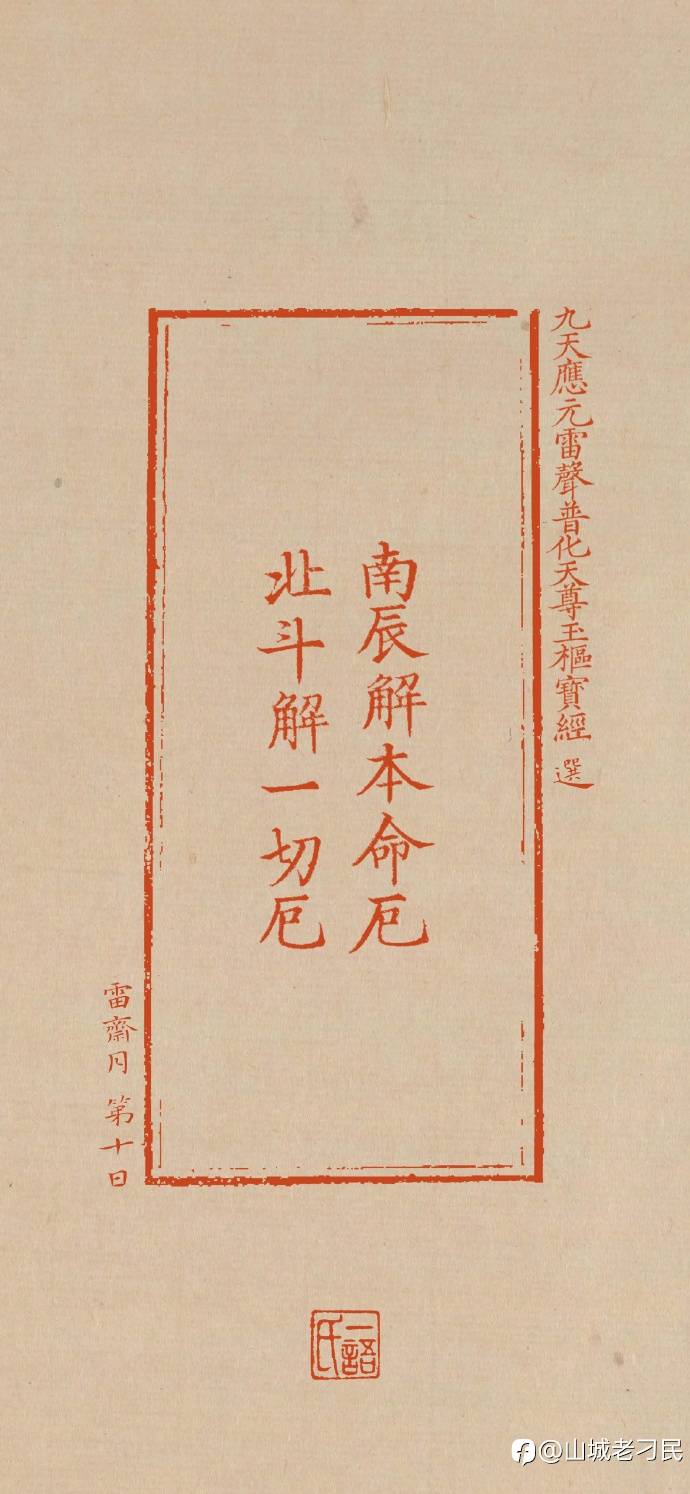 九天應元雷聲普化天尊玉樞寶經 選
南辰解本命厄
北斗解一切厄
雷齋月 第十日
一語氏
@山城老刁民